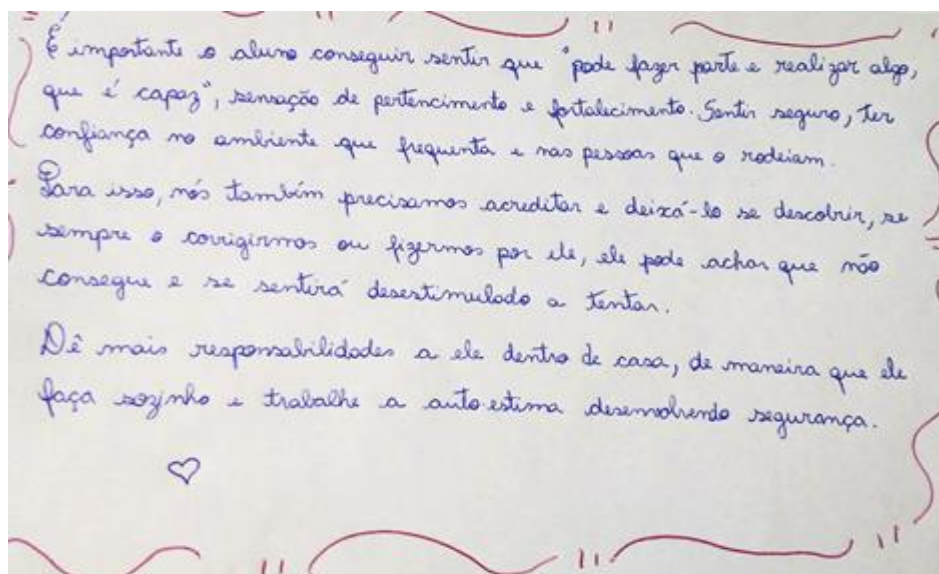 É importante o aluno conseguir sentir que "pode fazer parte e realizar algo,
que é capaz", sensação de pertencimento e fortalecimento. Sentir seguro, ter
confiança no ambiente que frequenta e nas pessoas que o rodeiam.
Para isso, nós também precisamos acreditar e deixá-lo se descobrir, se
sempre o corrigirmos ou fizermos por ele, ele pode achar que não
consegue e se sentirá desestimulado a tentar.
Dê mais responsabilidades a ele dentro de casa, de maneira que ele
faça sozinho e trabalhe a auto estima desenvolvendo segurança.